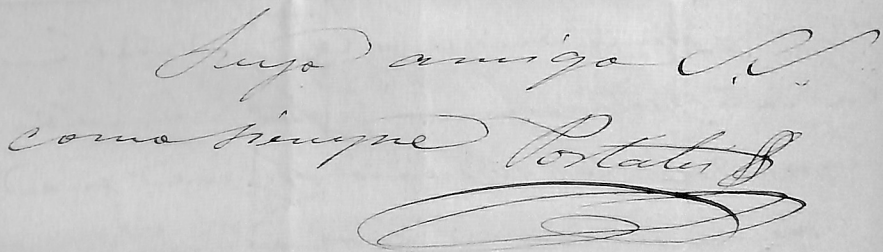 Suyo amigo S.S.
como siempre Portales